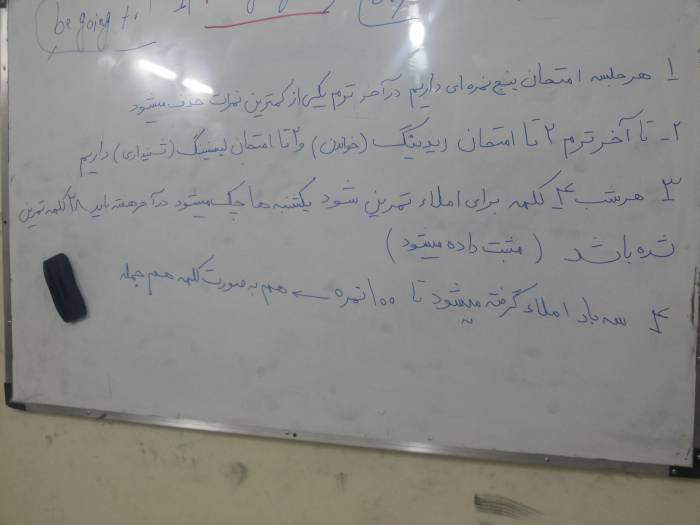 be going to
۱ هر جلسه امتحان پنج نمره ای داریم در آخر ترم یکی از کمترین نمرات حذف میشود
۲- تا آخر ترم ۲ تا امتحان ریدینگ (خواندن) و ۲ تا امتحان لیسنینگ (شنیداری) داریم
۳ هر شب ۴ کلمه برای املاء تمرین شود یکشنبه ها چک میشود در آخر هفته باید ۲۸ کلمه تمرین
شده باشد (مثبت داده میشود)
۴ سه بار املاء گرفته میشود تا ۱۰۰ نمره ← هم به صورت کلمه هم جمله